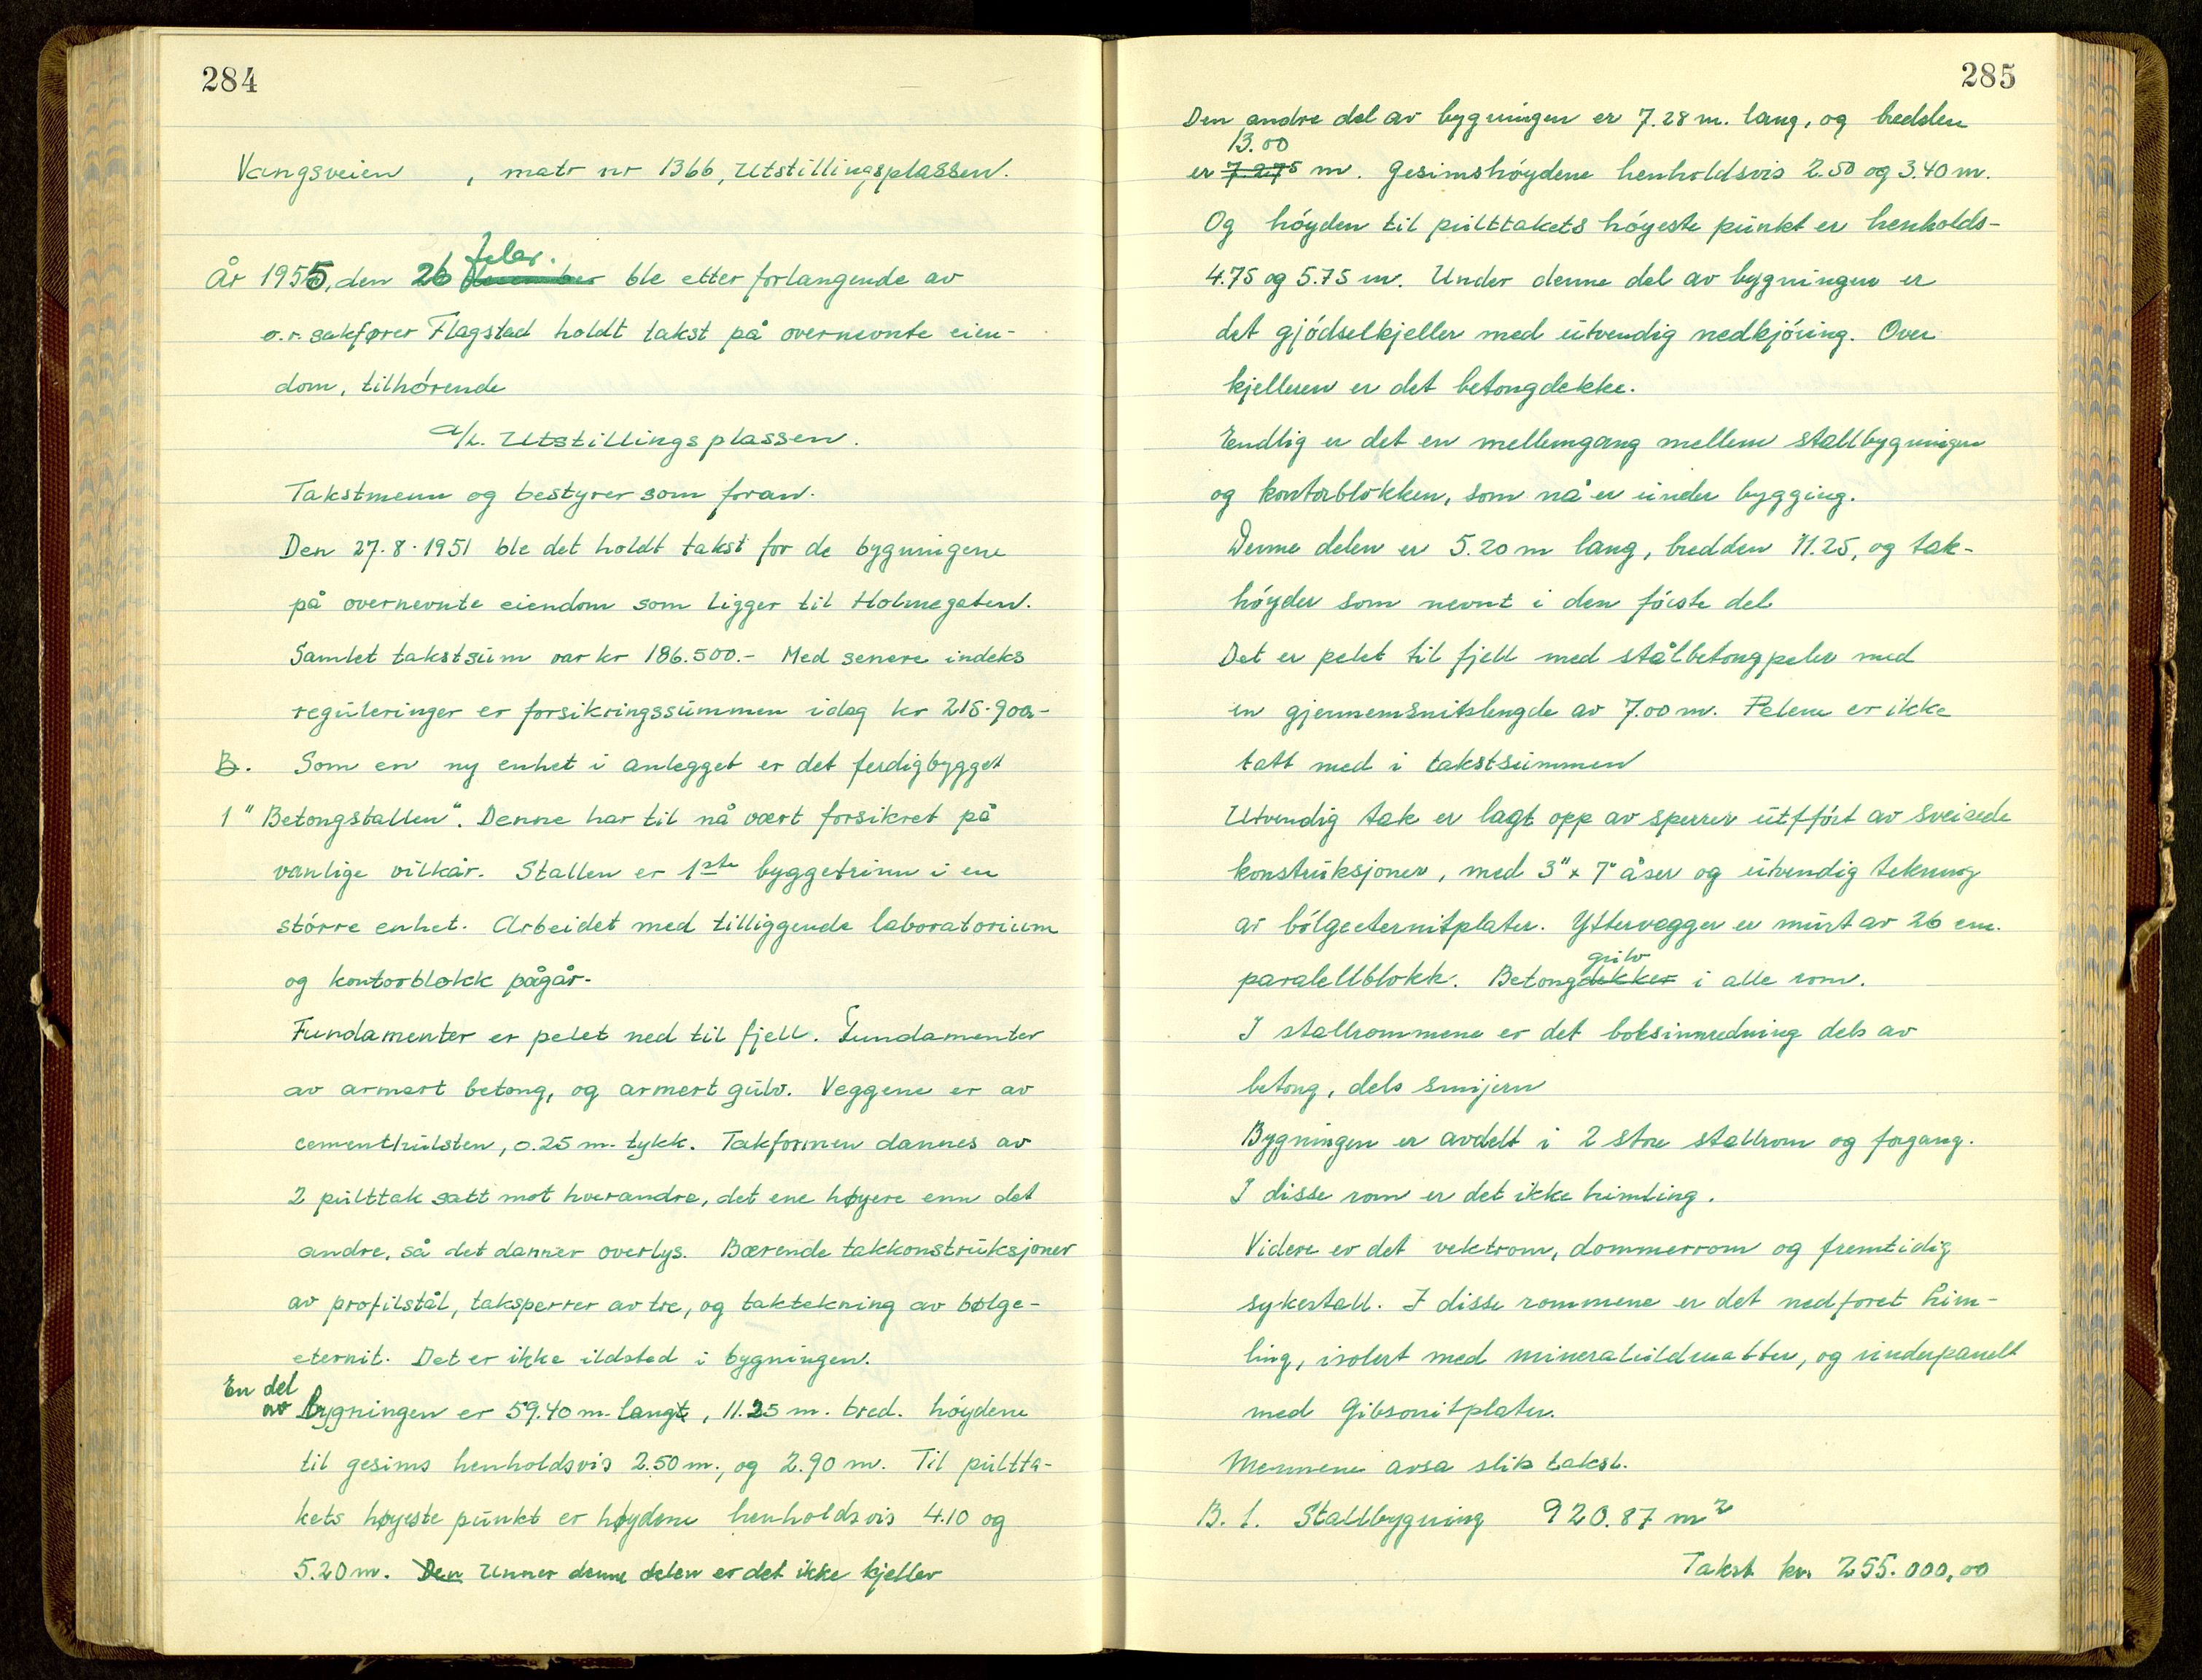 284
Vangsveien , matr nr 1366, Utstillingsplassen.
febr.
År 1955, den 26 desember ble etter forlangende av
o.r. sakfører Flagstad holdt takst på overnevnte eien-
dom, tilhørende
a/l. Utstillingsplassen.
Takstmenn og bestyrer som foran.
Den 27.8.1951 ble det holdt takst for de bygningene
på overnevnte eiendom som ligger til Holmegaten.
Samlet takstsum var kr 186.500.- Med senere indeks
reguleringer er forsikringssummen idag kr 215.900.-
B. Som en ny enhet i anlegget er det ferdigbygget
1 "Betongstallen". Denne har til nå vært forsikret på
vanlige vilkår. Stallen er 1ste byggetrinn i en
større enhet. Arbeidet med tilliggende laboratorium
og kontorblokk pågår.
Fundamenter er pelet ned til fjell. Fundamenter
av armert betong, og armert gulv. Veggene er av
cementhulsten, 0.25 m. tykk. Takformen dannes av
2 pulttak satt mot hverandre, det ene høyere enn det
andre, så det danner overlys. Bærende takkonstruksjoner
av profilstål, taksperrer av tre, og taktekning av bølge-
eternit. Det er ikke ildsted i bygningen.
En del
av bygningen er 59.40 m. langt, 11.25 m. bred. høydene
til gesims henholdsvis 2.50 m., og 2.90 m. Til pultta-
kets høyeste punkt er høydene henholdsvis 4.10 og
5.20 m. Den Unner denne delen er det ikke kjeller
285
Den andre del av bygningen er 7.28 m. lang, og bredden
13.00
er 7.275 m. Gesimshøydene henholdsvis 2.50 og 3.40 m.
Og høyden til pulttakets høyeste punkt er henholds-
4.75 og 5.75 m. Under denne del av bygningen er
det gjødselkjeller med utvendig nedkjøring. Over
kjelleren er det betongdekke.
Endlig er det en mellemgang mellem stallbygningen
og kontorblokken, som nå er under bygging.
Denne delen er 5.20 m lang, bredden 11.25, og tak-
høyder som nevnt i den første del
Det er pelet til fjell med stålbetongpeler med
en gjennemsnitslengde av 7.00 m. Pelene er ikke
tatt med i takstsummen
Utvendig tak er lagt opp av sperrer utfført av sveisede
konstruksjoner, med 3" x 7" åser og utvendig tekning
av bølgeeternitplater. Yttervegger er murt av 26 cm.
gulv
paralellblokk. Betongdekker i alle rom.
I stallrommene er det boksinnredning dels av
betong, dels smijern
Bygningen er avdelt i 2 store stallrom og forgang.
I disse rom er det ikke himling.
Videre er det vektrom, dommerrom og fremtidig
sykestall. I disse rommene er det nedforet him-
ling, isolert med mineralulldmatter, og underpanelt
med Gibsonitplater.
Mennene avsa slik takst.
B. 1. Stallbygning 920.87 m2
Takst kr. 255.000,00